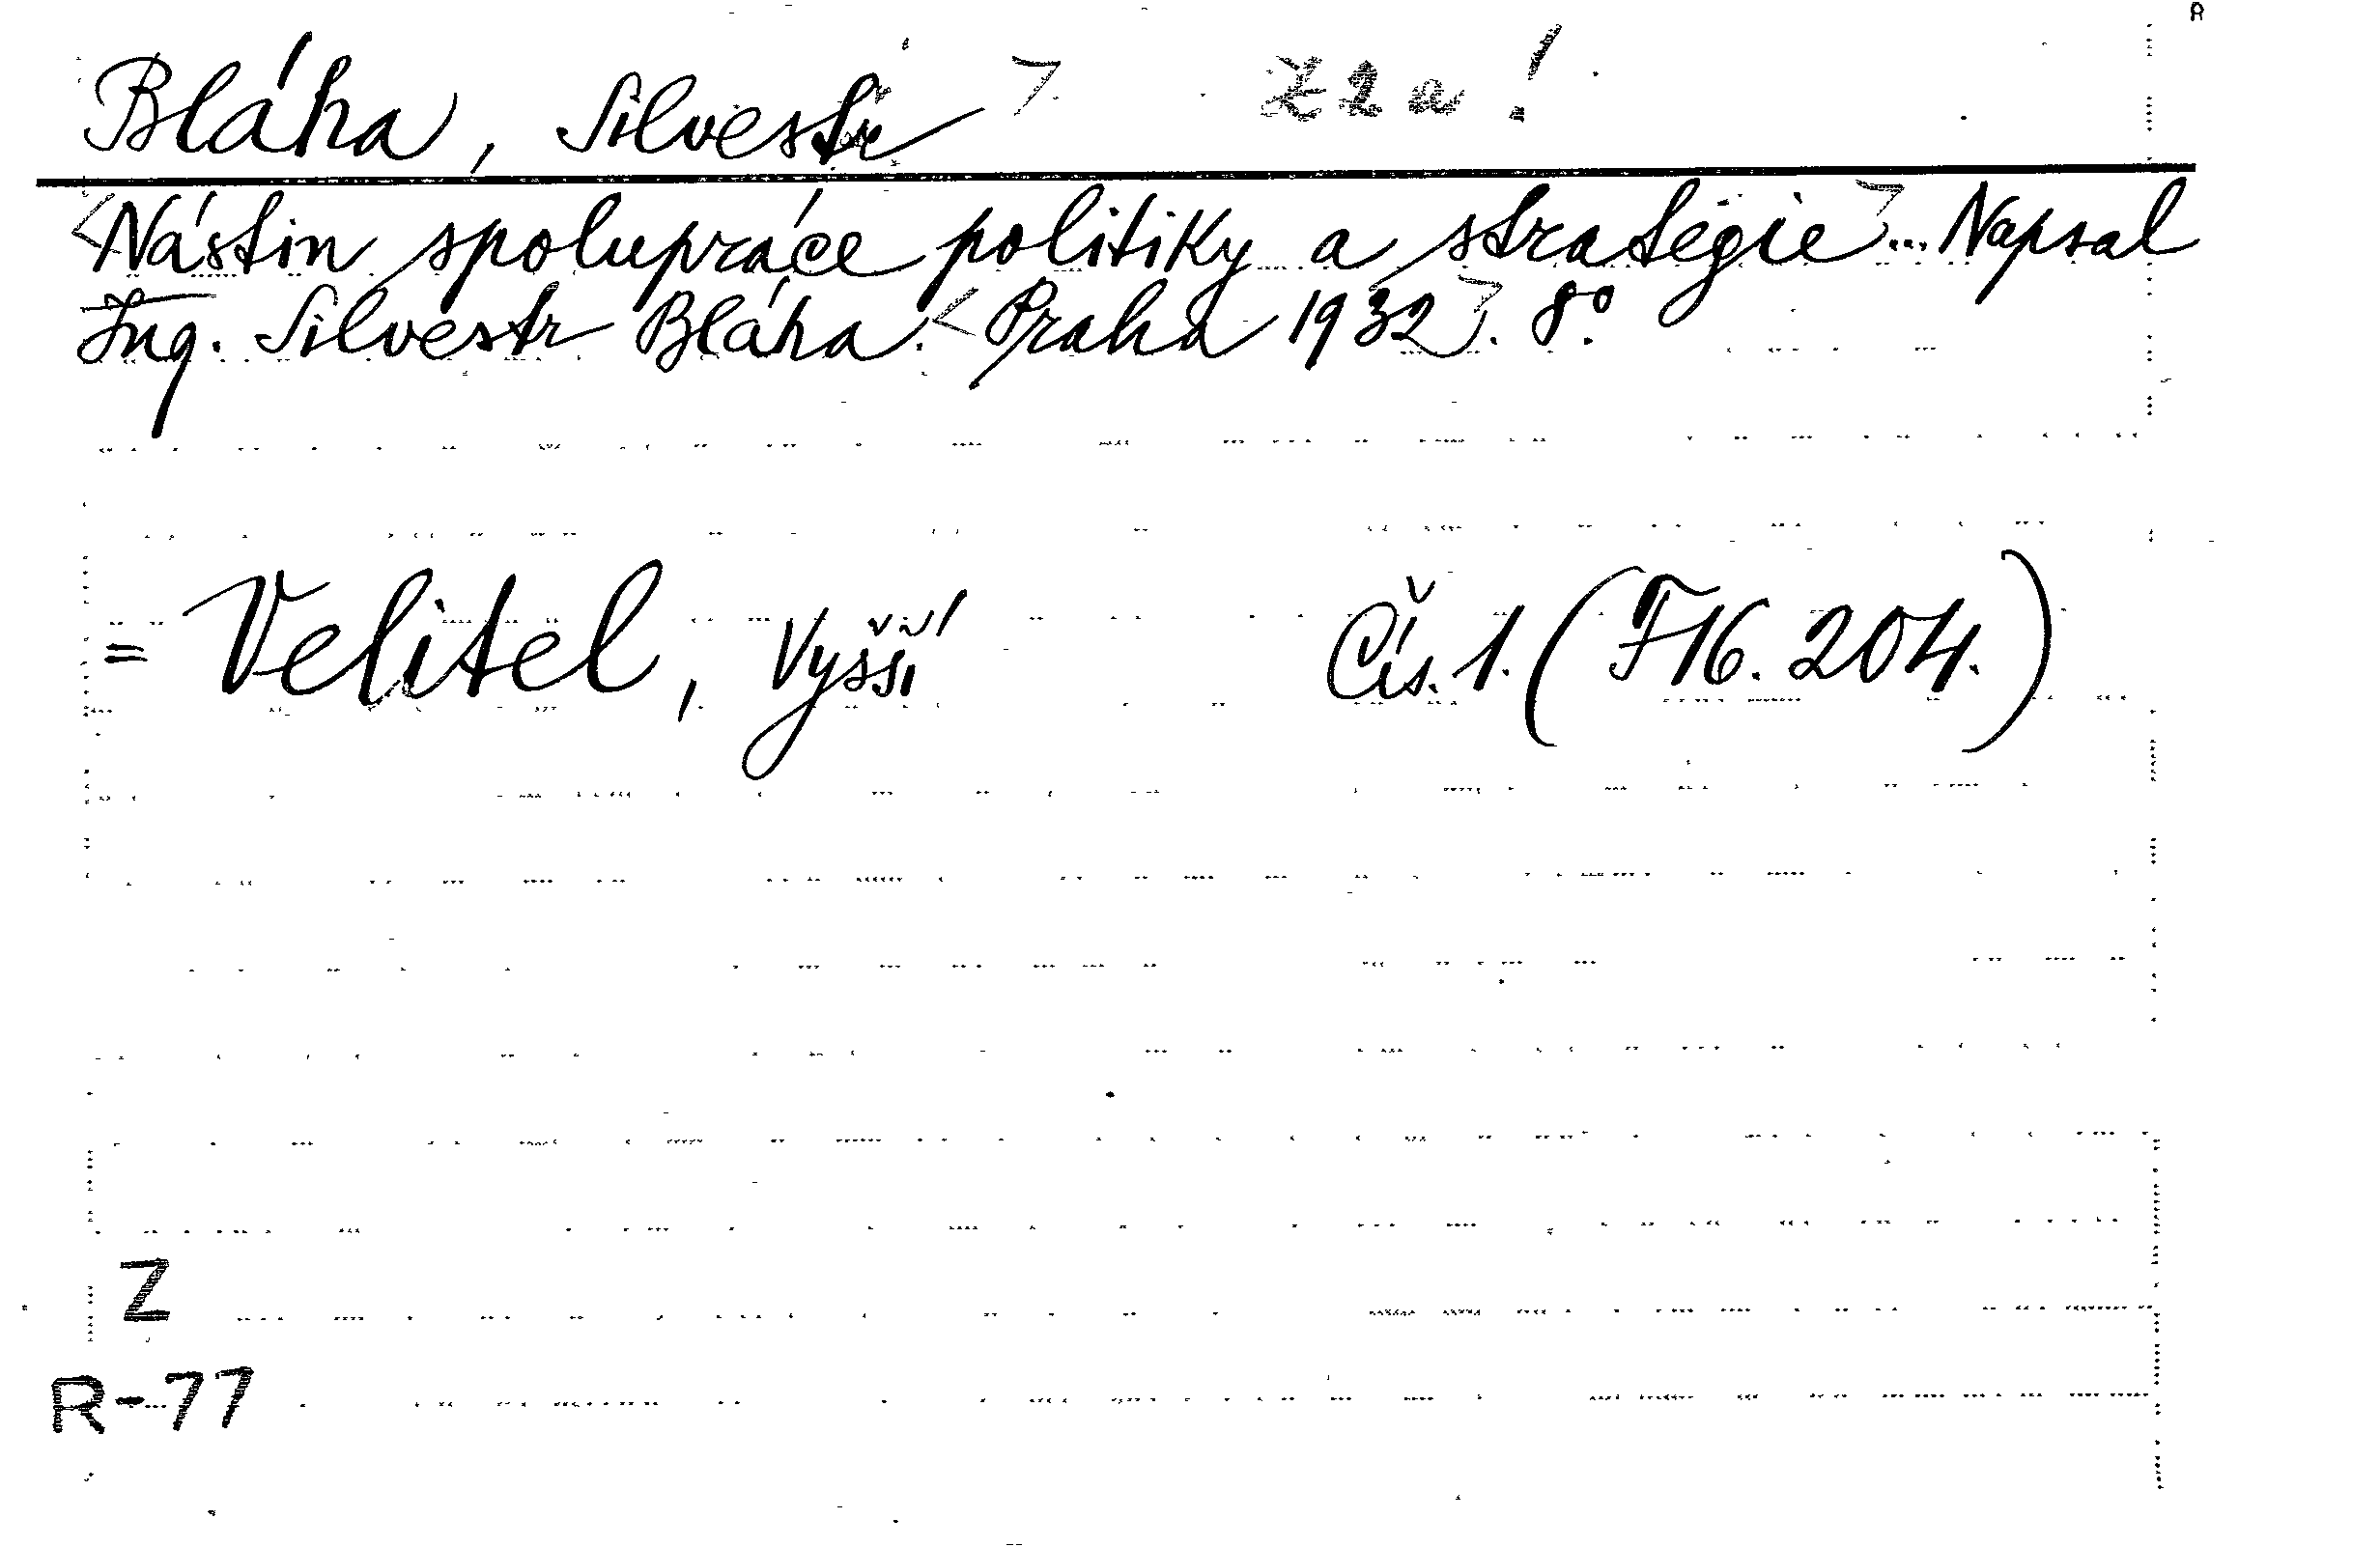 Bláha, Silvestr > Z 2 a !
<Nástin spolupráce politiky a stratégie>... Napsal
Ing. Silvestr Bláha. <Praha 1932>. 8°.
= Velitel, Vyšší Čís. 1. (F 16. 204.)
Z
R-77